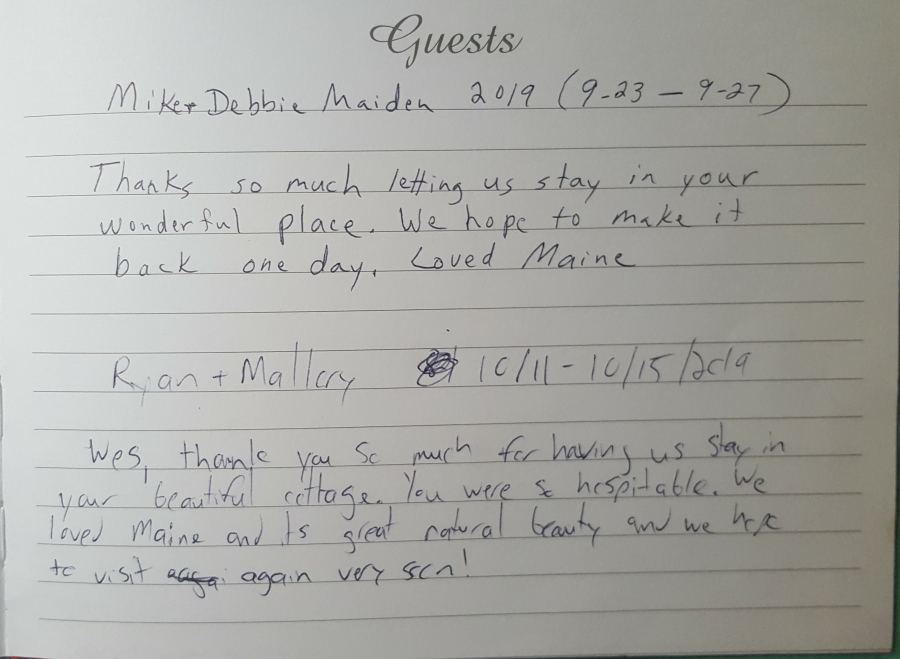 Guests
Mike + Debbie Maiden 2019 (9-23 – 9-27)
Thanks so much letting us stay in your
wonderful place. We hope to make it
back one day. Loved Maine
Ryan + Mallory 10/11 - 10/15/2019
Wes, thank you so much for having us stay in
your beautiful cottage. You were so hospitable. We
loved Maine and its great natural beauty and we hope
to visit again very soon!